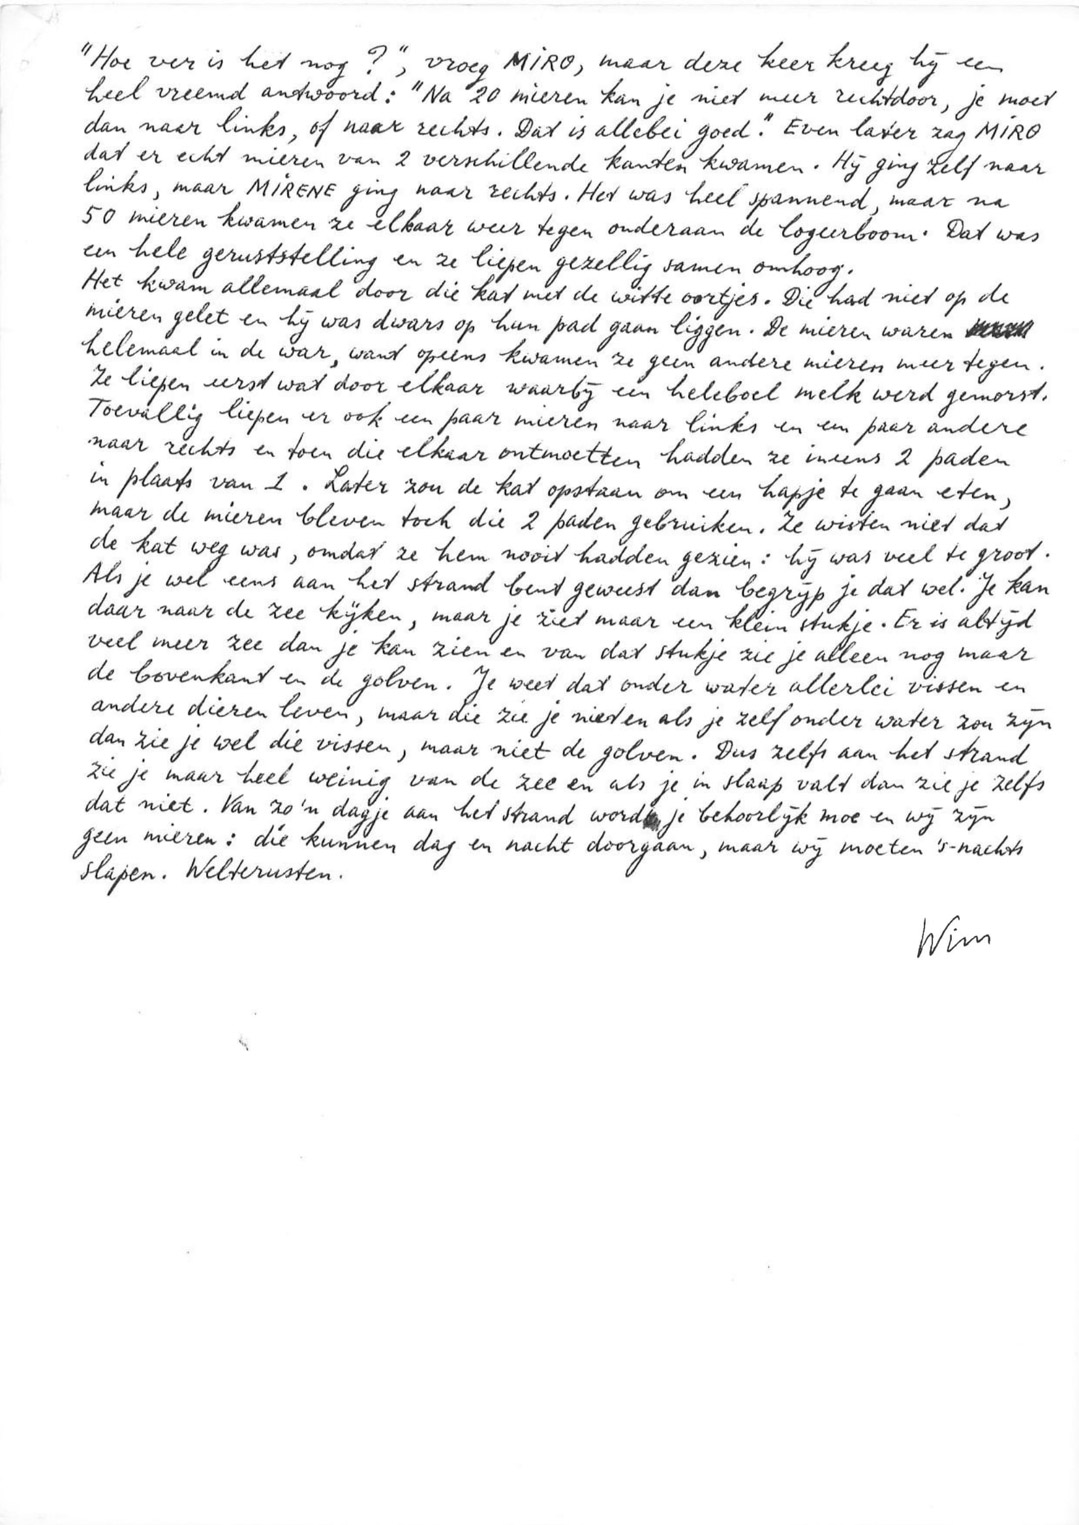 "Hoe ver is het nog?", vroeg MiRO, maar deze keer kreeg hij een
heel vreemd antwoord: "Na 20 mieren kan je niet meer rechtdoor, je moet
dan naar links, of naar rechts. Dat is allebei goed." Even later zag MiRO
dat er echt mieren van 2 verschillende kanten kwamen. Hij ging zelf naar
links, maar MiRENE ging naar rechts. Het was heel spannend, maar na
50 mieren kwamen ze elkaar weer tegen onderaan de logeerboom. Dat was
een hele geruststelling en ze liepen gezellig samen omhoog.
Het kwam allemaal door die kat met de witte oortjes. Die had niet op de
mieren gelet en hij was dwars op hun pad gaan liggen. De mieren waren
helemaal in de war, want opeens kwamen ze geen andere mieren meer tegen.
Ze liepen eerst wat door elkaar waarbij een heleboel melk werd gemorst.
Toevallig liepen er ook een paar mieren naar links en een paar andere
naar rechts en toen die elkaar ontmoetten hadden ze ineens 2 paden
in plaats van 1. Later zou de kat opstaan om een hapje te gaan eten,
maar de mieren bleven toch die 2 paden gebruiken. Ze wisten niet dat
de kat weg was, omdat ze hem nooit hadden gezien: hij was veel te groot.
Als je wel eens aan het strand bent geweest dan begrijp je dat wel. Je kan
daar naar de zee kijken, maar je ziet maar een klein stukje. Er is altijd
veel meer zee dan je kan zien en van dat stukje zie je alleen nog maar
de bovenkant en de golven. Je weet dat onder water allerlei vissen en
andere dieren leven, maar die zie je niet en als je zelf onder water zou zijn
dan zie je wel die vissen, maar niet de golven. Dus zelfs aan het strand
zie je maar heel weinig van de zee en als je in slaap valt dan zie je zelfs
dat niet. Van zo'n dagje aan het strand word je behoorlijk moe en wij zijn
geen mieren: die kunnen dag en nacht doorgaan, maar wij moeten 's-nachts
slapen. Welterusten.
Wim